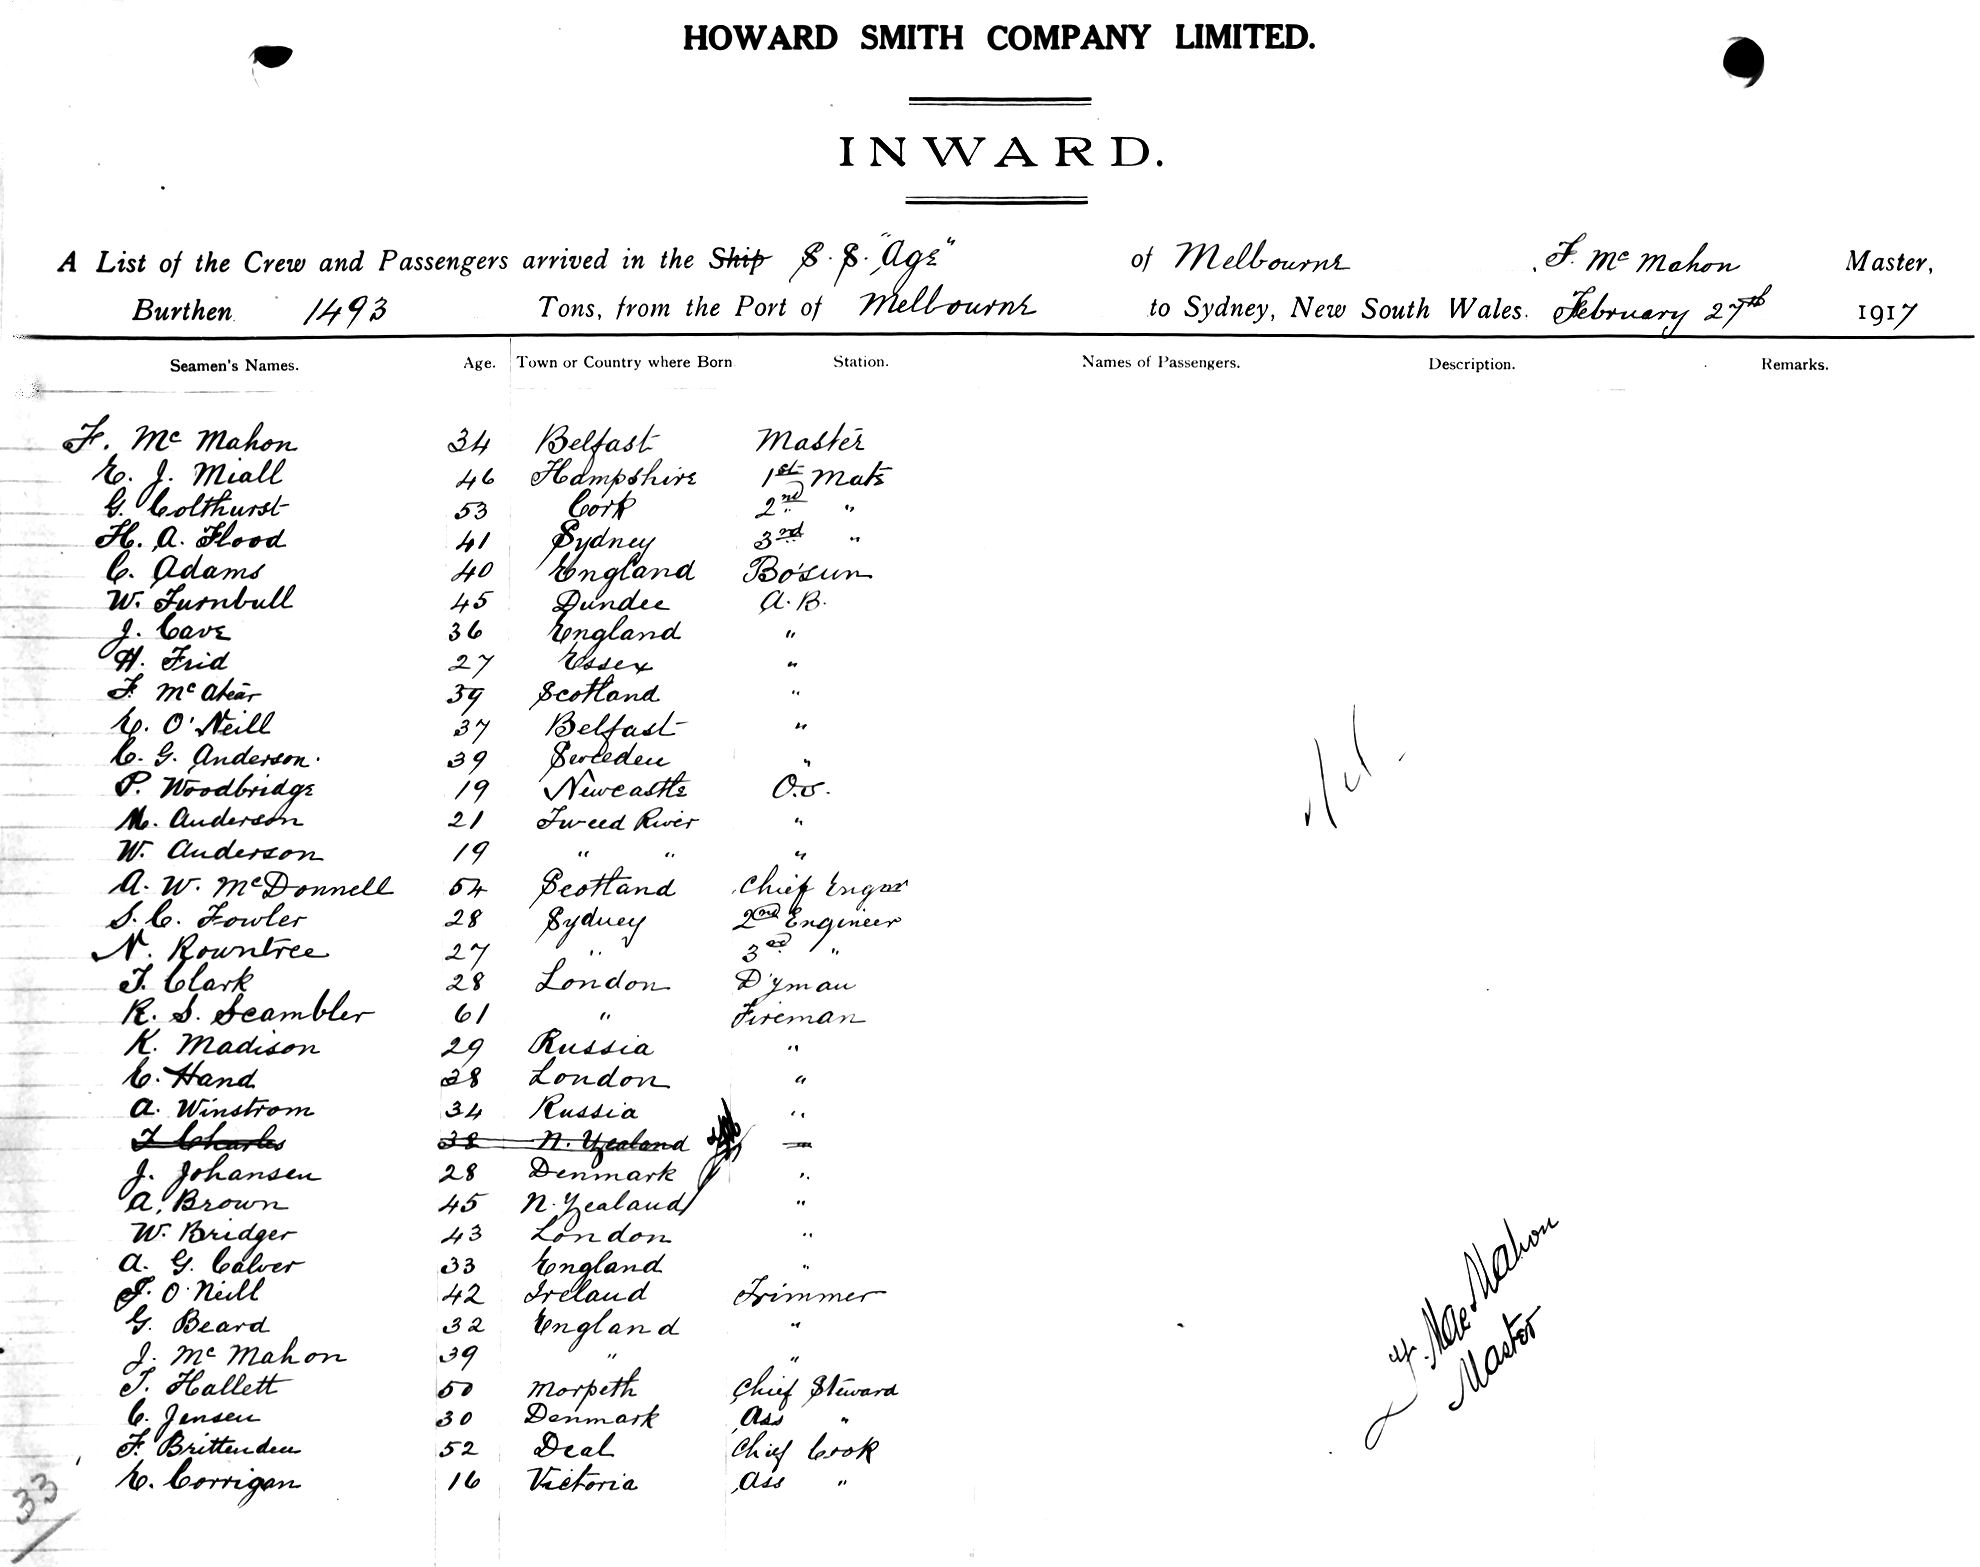 HOWARD SMITH COMPANY LIMITED.
INWARD.
A List of the Crew and Passengers arrived in the Ship S.S. "Age" of Melbourne, F. Mc Mahon Master,
Burthen 1493 Tons, from the Port of Melbourne to Sydney, New South Wales. February 27th 1917
Seamen's Names. Age. Town or Country where Born Station. Names of Passengers. Description. Remarks.
F. Mc Mahon 34 Belfast Master
E. J. Miall 46 Hampshire 1st Mate
G. Colthurst 53 Cork 2nd "
H. A. Flood 41 Sydney 3rd "
C. Adams 40 England Bo'sun
W. Turnbull 45 Dundee A.B.
J. Cave 36 England "
H. Frid 27 Essex "
F. McAtear 39 Scotland "
E. O'Neill 37 Belfast "
C. G. Anderson. 39 Sweeden "
P. Woodbridge 19 Newcastle O.S.
M. Anderson 21 Tweed River "
W. Anderson 19 " " "
A. W. McDonnell 54 Scotland Chief Engnr
S. C. Fowler 28 Sydney 2nd Engineer
N. Rowntree 27 " 3rd "
T. Clark 28 London D'yman
R. S. Scambler 61 " Fireman
K. Madison 29 Russia "
E. Hand 28 London "
A. Winstrom 34 Russia "
T Charles 38 N. Zealand
J. Johansen 28 Denmark "
A. Brown 45 N. Zealand "
W. Bridger 43 London "
A. G. Calver 33 England "
F. O'Neill 42 Ireland Trimmer
G. Beard 32 England "
J. Mc Mahon 39 " "
T. Hallett 50 Morpeth Chief Steward
C. Jensen 30 Denmark Ass "
F. Brittenden 52 Deal Chief Cook
E. Corrigan 16 Victoria Ass "
Nil.
F. MacMahon
Master
33